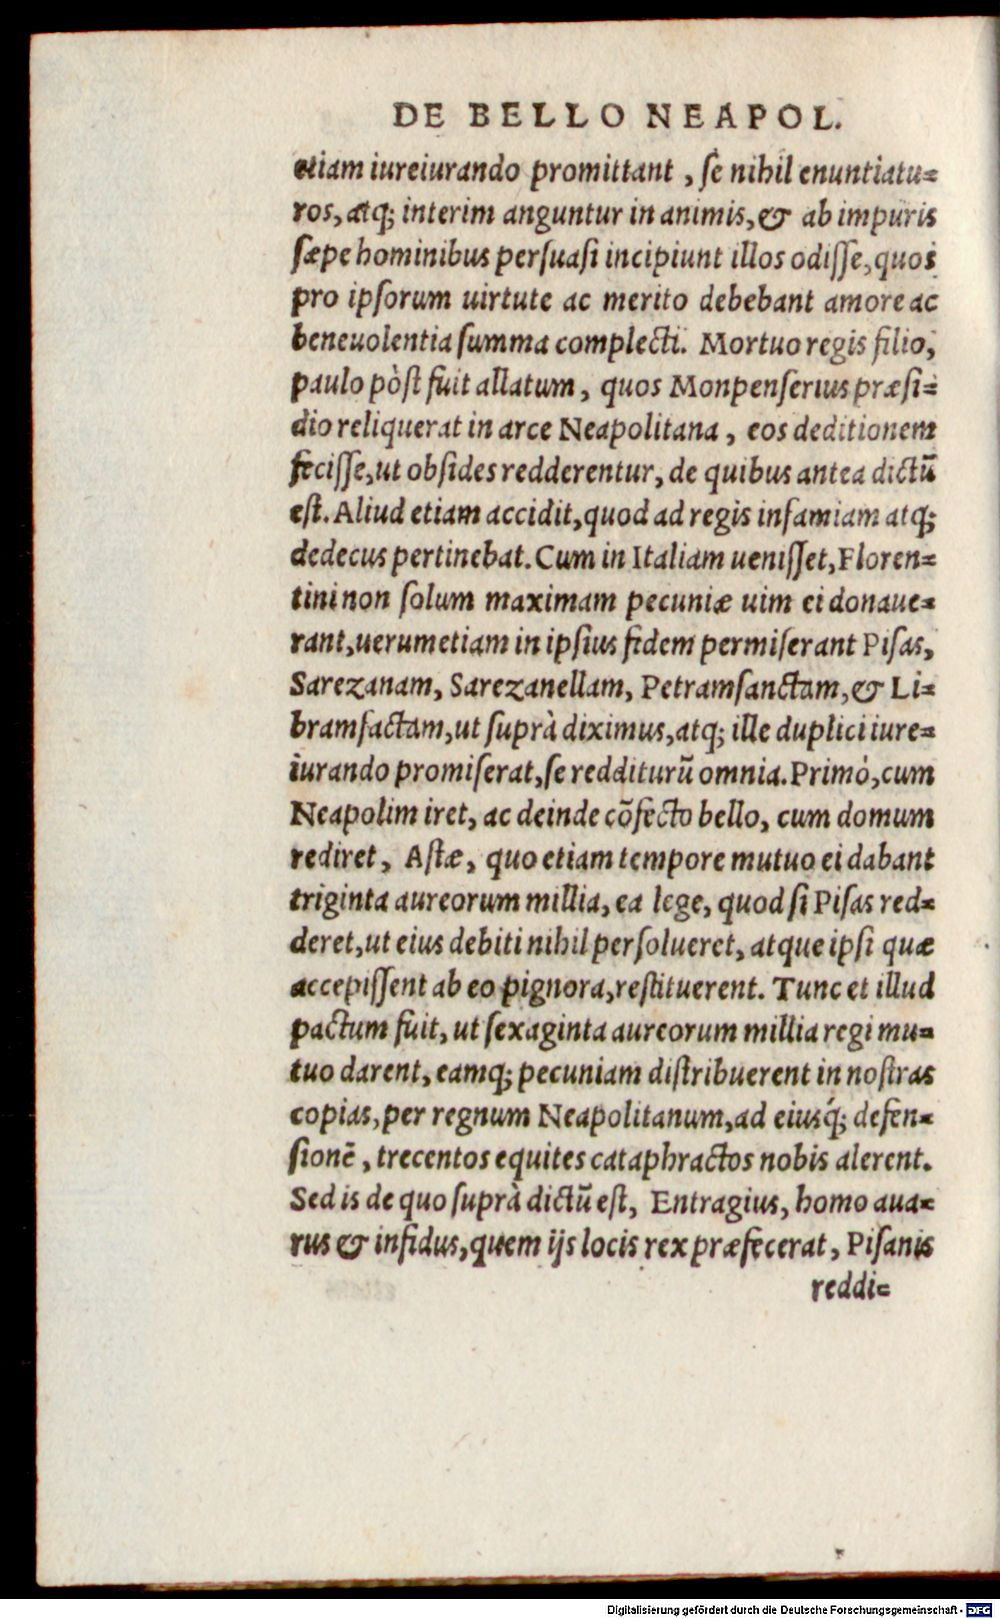 DE BELLO NEAPOL.
etiam iureiurando promittant, ſe nihil enuntiatu=
ros, atq; interim anguntur in animis, & ab impuris
ſæpe hominibus perſuaſi incipiunt illos odiſſe, quos
pro ipſorum uirtute ac merito debebant amore ac
beneuolentia ſumma complecti. Mortuo regis filio,
paulo pòſt fuit allatum, quos Monpenſerius præſi=
dio reliquerat in arce Neapolitana, eos deditionem
feciſſe, ut obſides redderentur, de quibus antea dictũ
eſt. Aliud etiam accidit, quod ad regis infamiam atq;
dedecus pertinebat. Cum in Italiam ueniſſet, Floren=
tini non ſolum maximam pecuniæ uim ei donaue=
rant, uerumetiam in ipſius fidem permiſerant Piſas,
Sarezanam, Sarezanellam, Petramſanctam, & Li=
bramfactam, ut ſuprà diximus, atq; ille duplici iure=
iurando promiſerat, ſe redditurũ omnia. Primò, cum
Neapolim iret, ac deinde cõfecto bello, cum domum
rediret, Aſtæ, quo etiam tempore mutuo ei dabant
triginta aureorum millia, ea lege, quod ſi Piſas red=
deret, ut eius debiti nihil perſolueret, atque ipſi quæ
accepiſſent ab eo pignora, reſtituerent. Tunc et illud
pactum fuit, ut ſexaginta aureorum millia regi mu=
tuo darent, eamq; pecuniam diſtribuerent in noſtras
copias, per regnum Neapolitanum, ad eiusq́; defen=
ſionẽ, trecentos equites cataphractos nobis alerent.
Sed is de quo ſuprà dictũ eſt, Entragius, homo aua=
rus & infidus, quem ijs locis rex præfecerat, Piſanis
reddi=
Digitalisierung gefördert durch die Deutsche Forschungsgemeinschaft - DFG